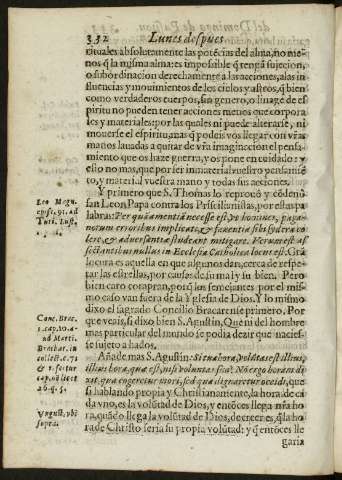 332 Lunes despues
rituales absolutamente las potēcias del alma, no me-
nos q̄ la misma alma: es impossible q̄ tengā sujecion,
o subordinacion derechamente a las acciones, a las in-
fluencias y mouimientos de los cielos y astros, q̄ bien
como verdaderos cuerpos, sin genero, o linage de es-
piritu no pueden tener acciones menos que corpora-
les y materiales: por las quales ni puede alterarse, ni
mouerse el espiritu, mas q̄ podeis vos llegar con vr̄as
manos lauadas a quitar de vr̄a imaginaciōn el pensa-
miento que os haze guerra, y os pone en cuidado: y
esto no mas, que por ser immaterial vuestro pensamiē-
to, y material vuestra mano y todas sus acciones.
Y primero que S. Thomas lo reprouò y cōdenò
san Leon Papa contra los Priscilianistas, por estas pa-
labras: Per quā amentiā necesse est, vt homines, paga-
norum erroribus implicati, & fauentia sibi sydera co-
lere, & aduersantia studeant mitigare. Verum est as
sectantibus nullus in Ecclesia Catholica locus est. Grā
locura es aquella en que algunos dan, cerca de respe-
tar las estrellas, por causas de su mal y su bien. Pero
bien caro compran, porq̄ los semejantes por el mis-
mo caso van fuera de la Yglesia de Dios. Y lo mismo
dixo el sagrado Concilio Bracarense primero. Por
que veais, si dixo bien S. Agustin, Que ni del hombre
mas particular del mundo se podia dezir que nacies-
se sujeto a hados.
Añade mas S. Agustin:
si hablando propia y Christianamente, la hora de ca
da vno, es la volūtad de Dios, y entōces llega nr̄a ho
ra, quādo llega la volūtad de Dios, de creer es, q̄ la ho
ra de Christo seria su propia volūtad: y q̄ entōces lle
garia
Leo Magn.
epist. 91. ad
Conc. Brac.
1. cap. 10.
ad Marti.
Brachar. in
collect. c. 72
26. q. 5.
August. vbi
supra.